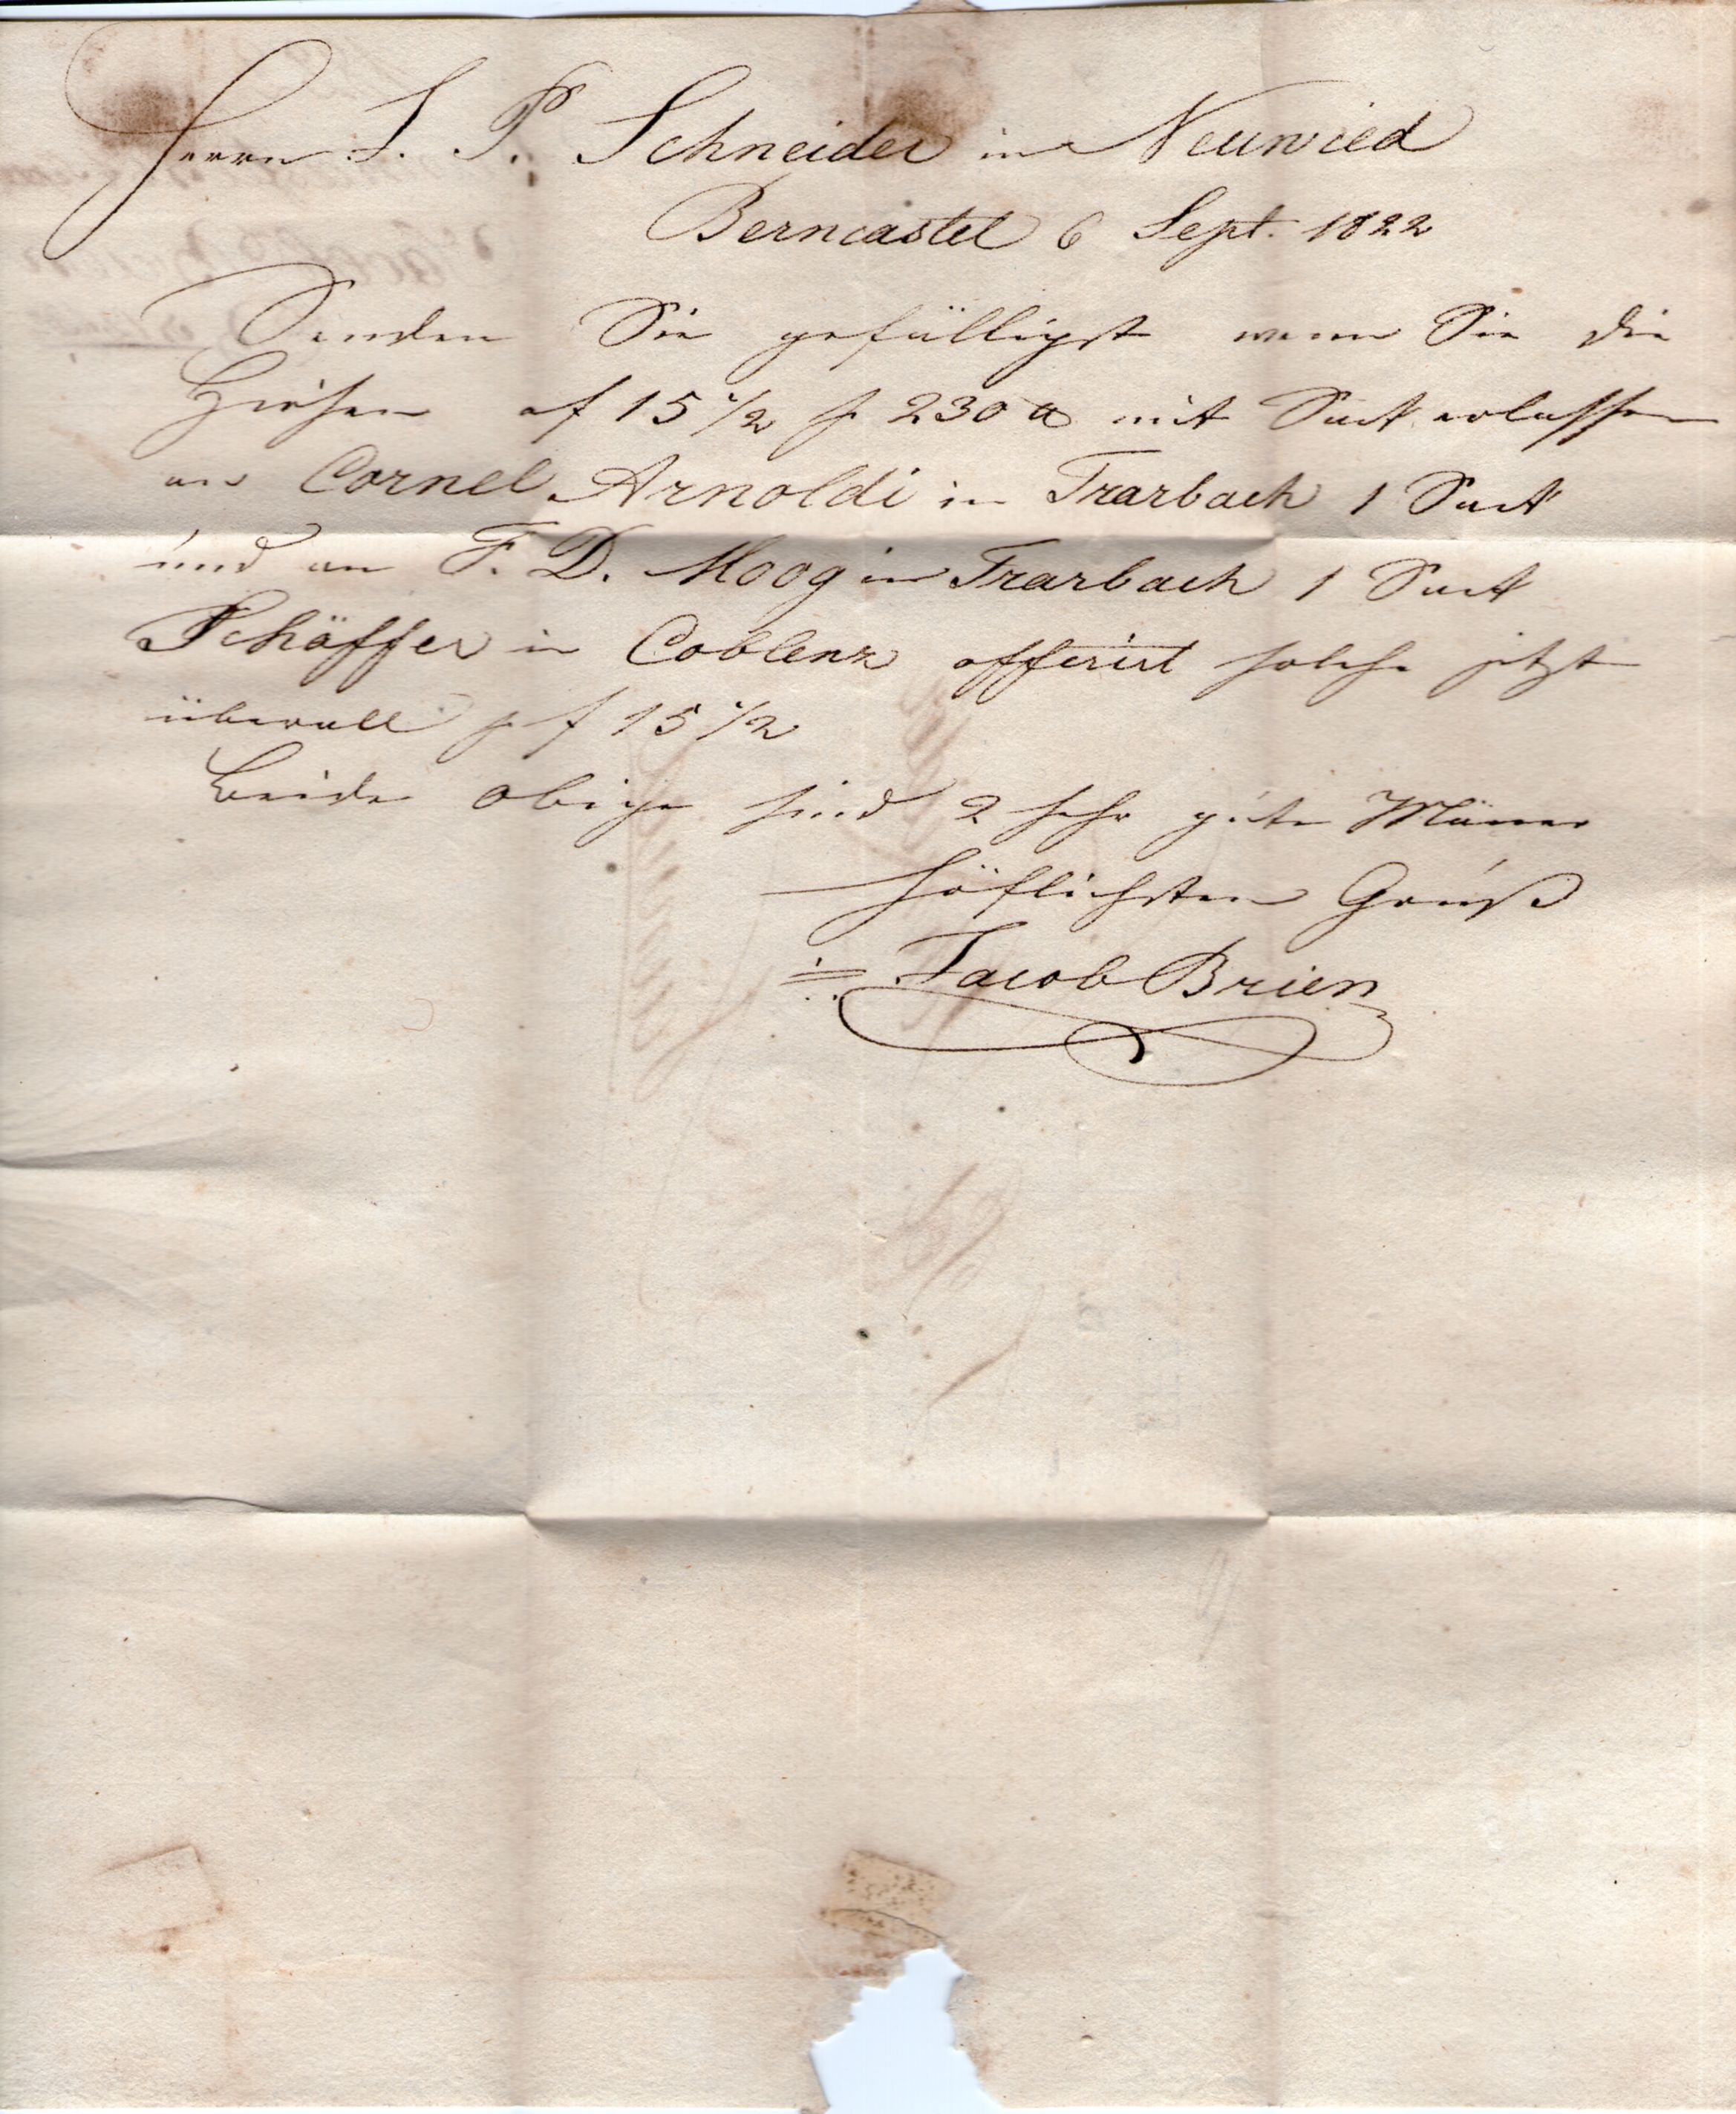 Herrn J. P. Schneider in Neuwied
Berncastel 6 Sept. 1822
Senden Sie gefälligst wenn Sie die
Hirsen af 15 1/2 p 230 ℔ mit Sack erlassen
an Cornel Arnoldi in Trarbach 1 Sack
und an F. D. Moog in Trarbach 1 Sack
Schäffer in Coblenz offerirt solche jetzt
überall p f 15 1/2
Beide obige sind 2 sehr gute Männer
höflichsten Gruß
Jacob Brien